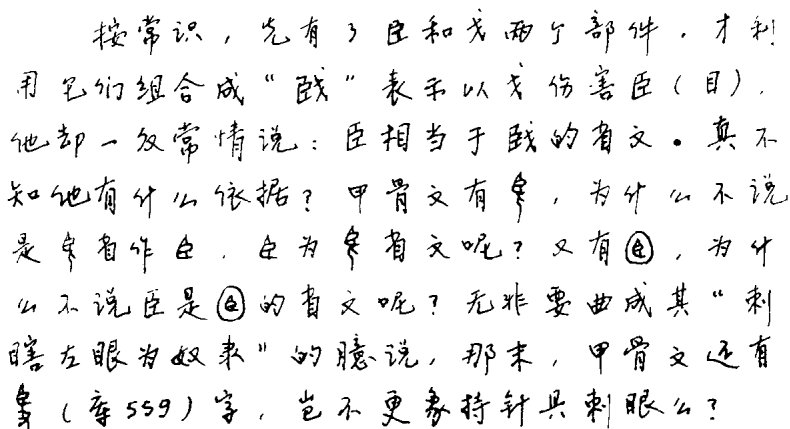 按常识，先有了臣和戈两个部件，才利
用它们组合成“臤”表示以戈伤害臣（目），
他却一反常情说：臣相当于的省文。真不
知他有什么依据？甲骨文有，为什么不说
是省作臣，臣为省文呢？又有，为什
么不说臣是的省文呢？无非要曲成其“刺
瞎左眼为奴隶”的臆说，那末，甲骨文还有
（库559）字，岂不更象持针具刺眼么？